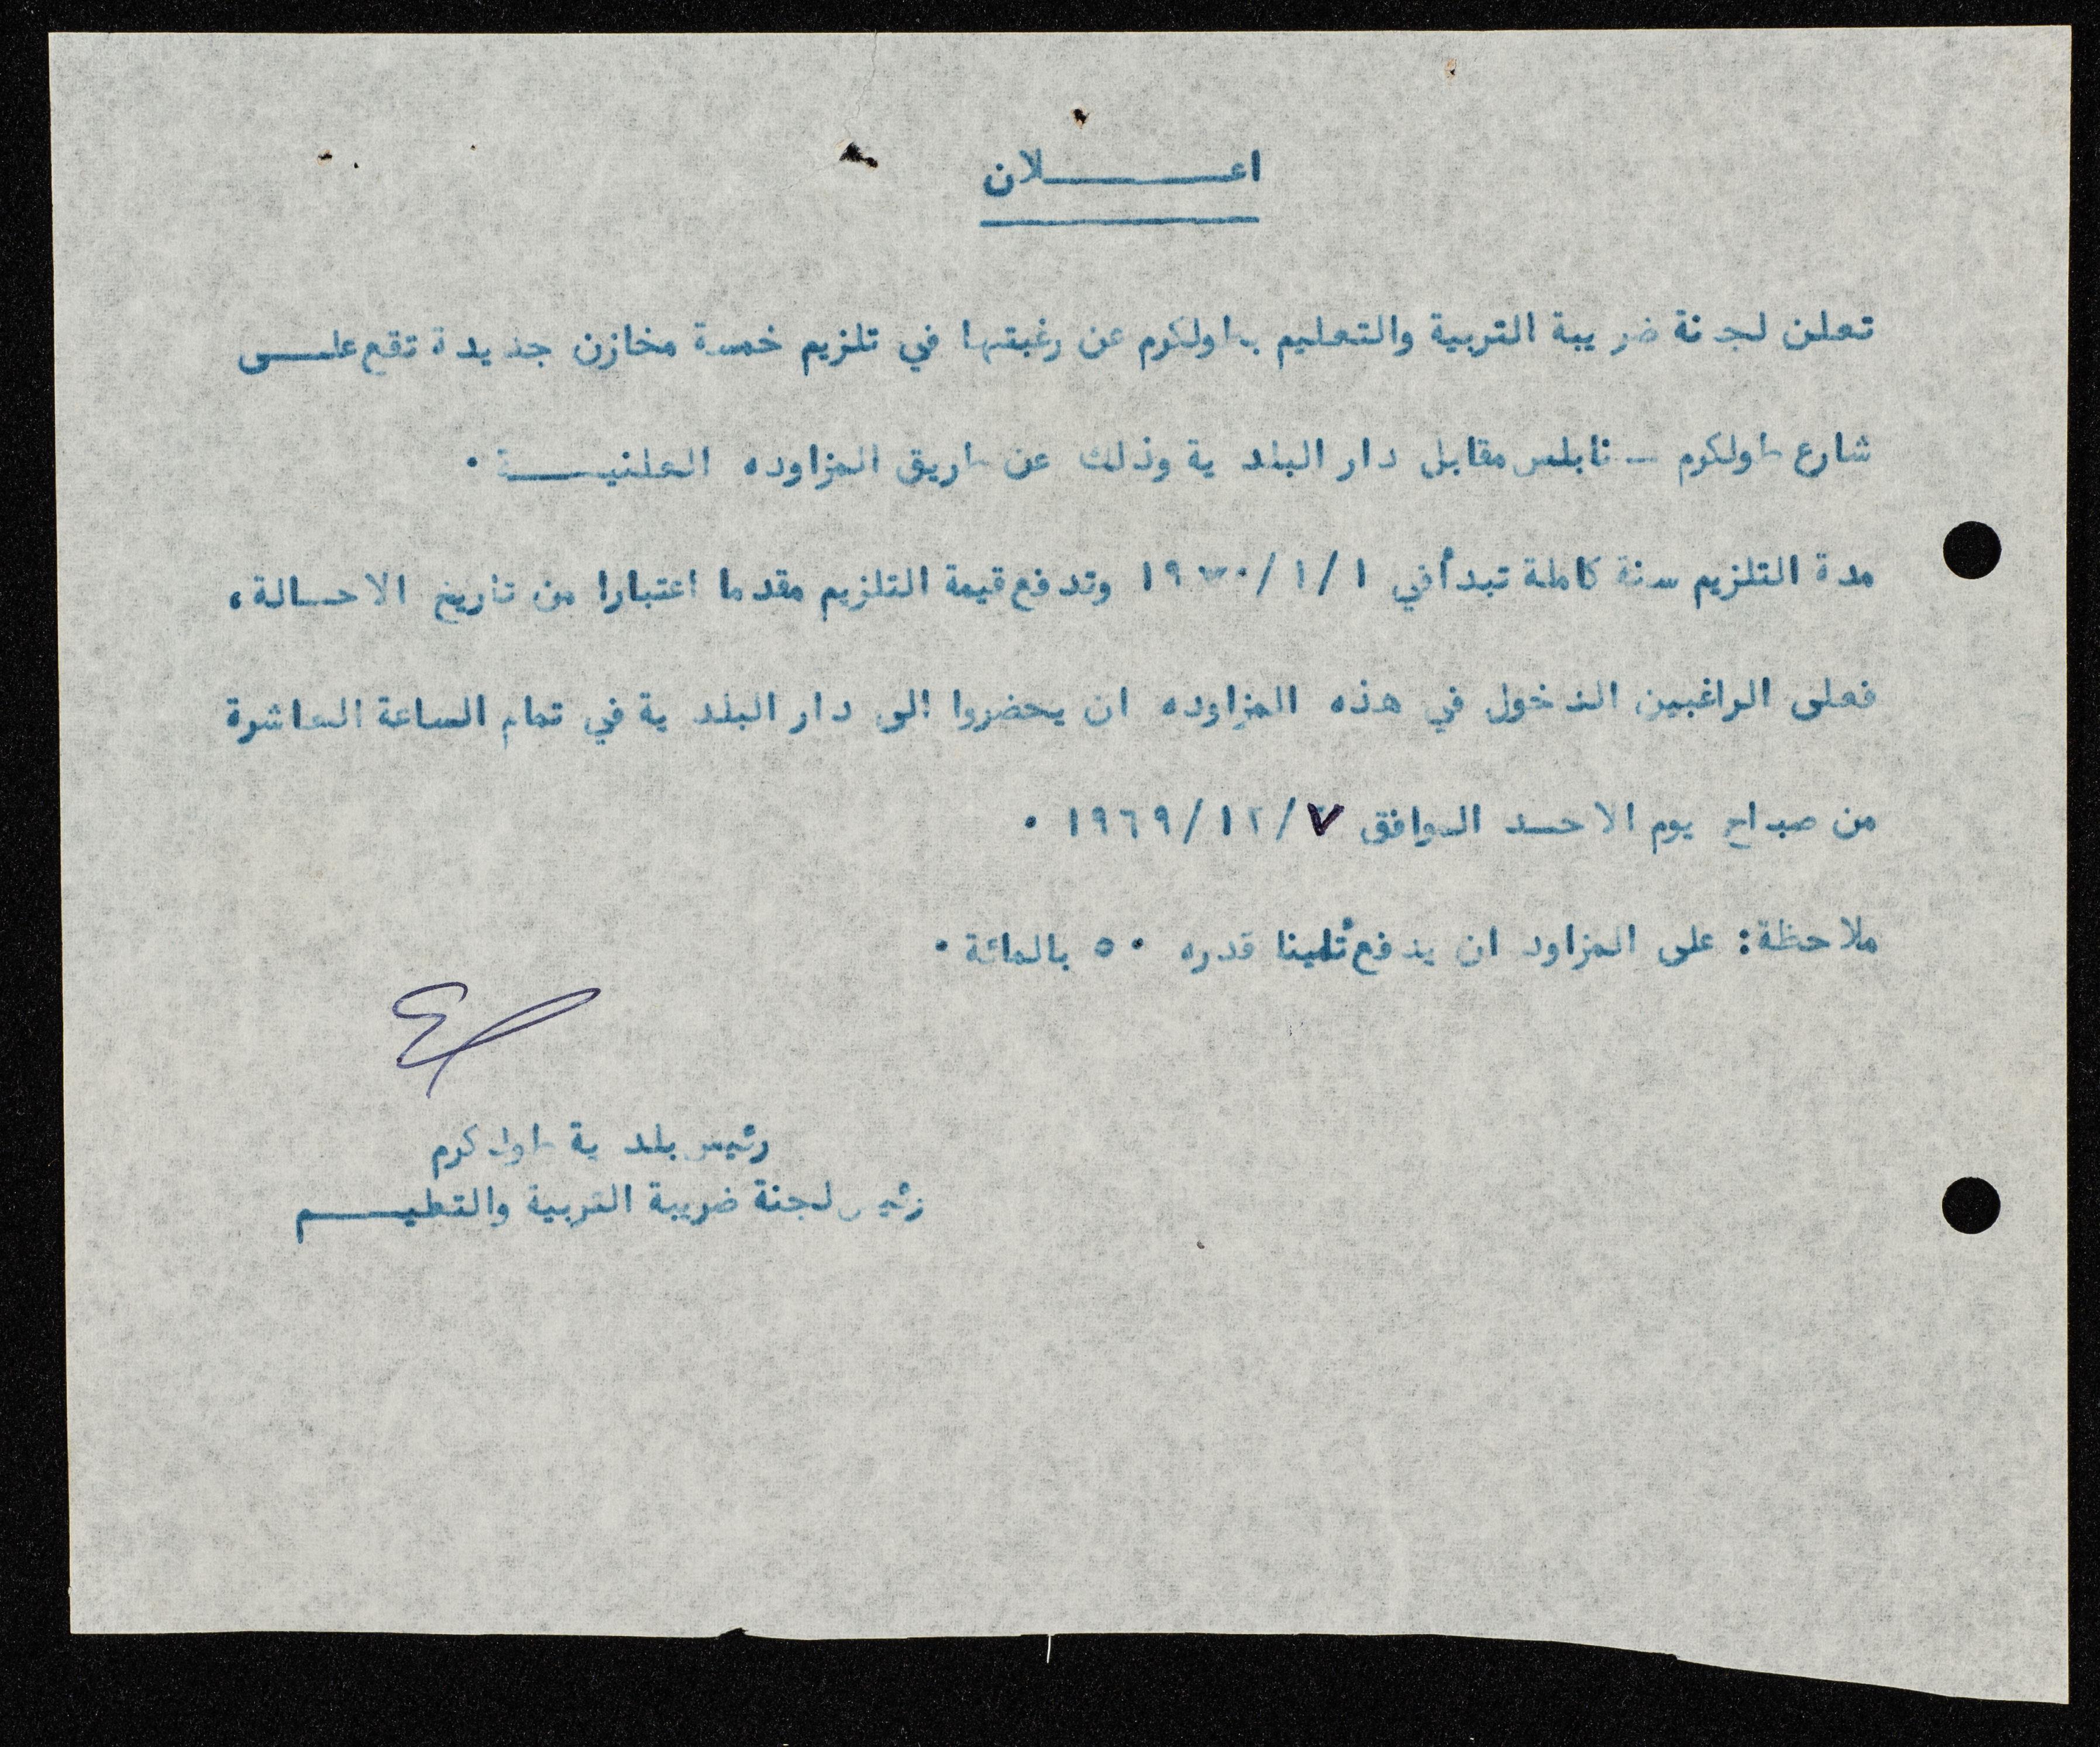 اعـــــــلان
تعلن لجنة ضريبة التربية والتعليم بطولكرم عن رغبتها في تلزيم خمسة مخازن جديدة تقع علـــى
شارع طولكرم ــ نابلس مقابل دار البلدية وذلك عن طريق المزاوده العلنيـــــة ٠
مدة التلزيم سنة كاملة تبدأ في ١/١/١٩٧٠ وتدفع قيمة التلزيم مقدما اعتبارا من تاريخ الاحــالة،
فعلى الراغبين الدخول في هذه المزاوده ان يحضروا الى دار البلدية في تمام الساعة العاشرة
من صباح يوم الاحــد الموافق ٧/١٢/١٩٦٩ ٠
ملاحظة: على المزاود ان يدفع تأمينا قدره ٥٠ بالمائة ٠
رئيس بلدية طولكرم
رئيس لجنة ضريبة التربية والتعليـــــم